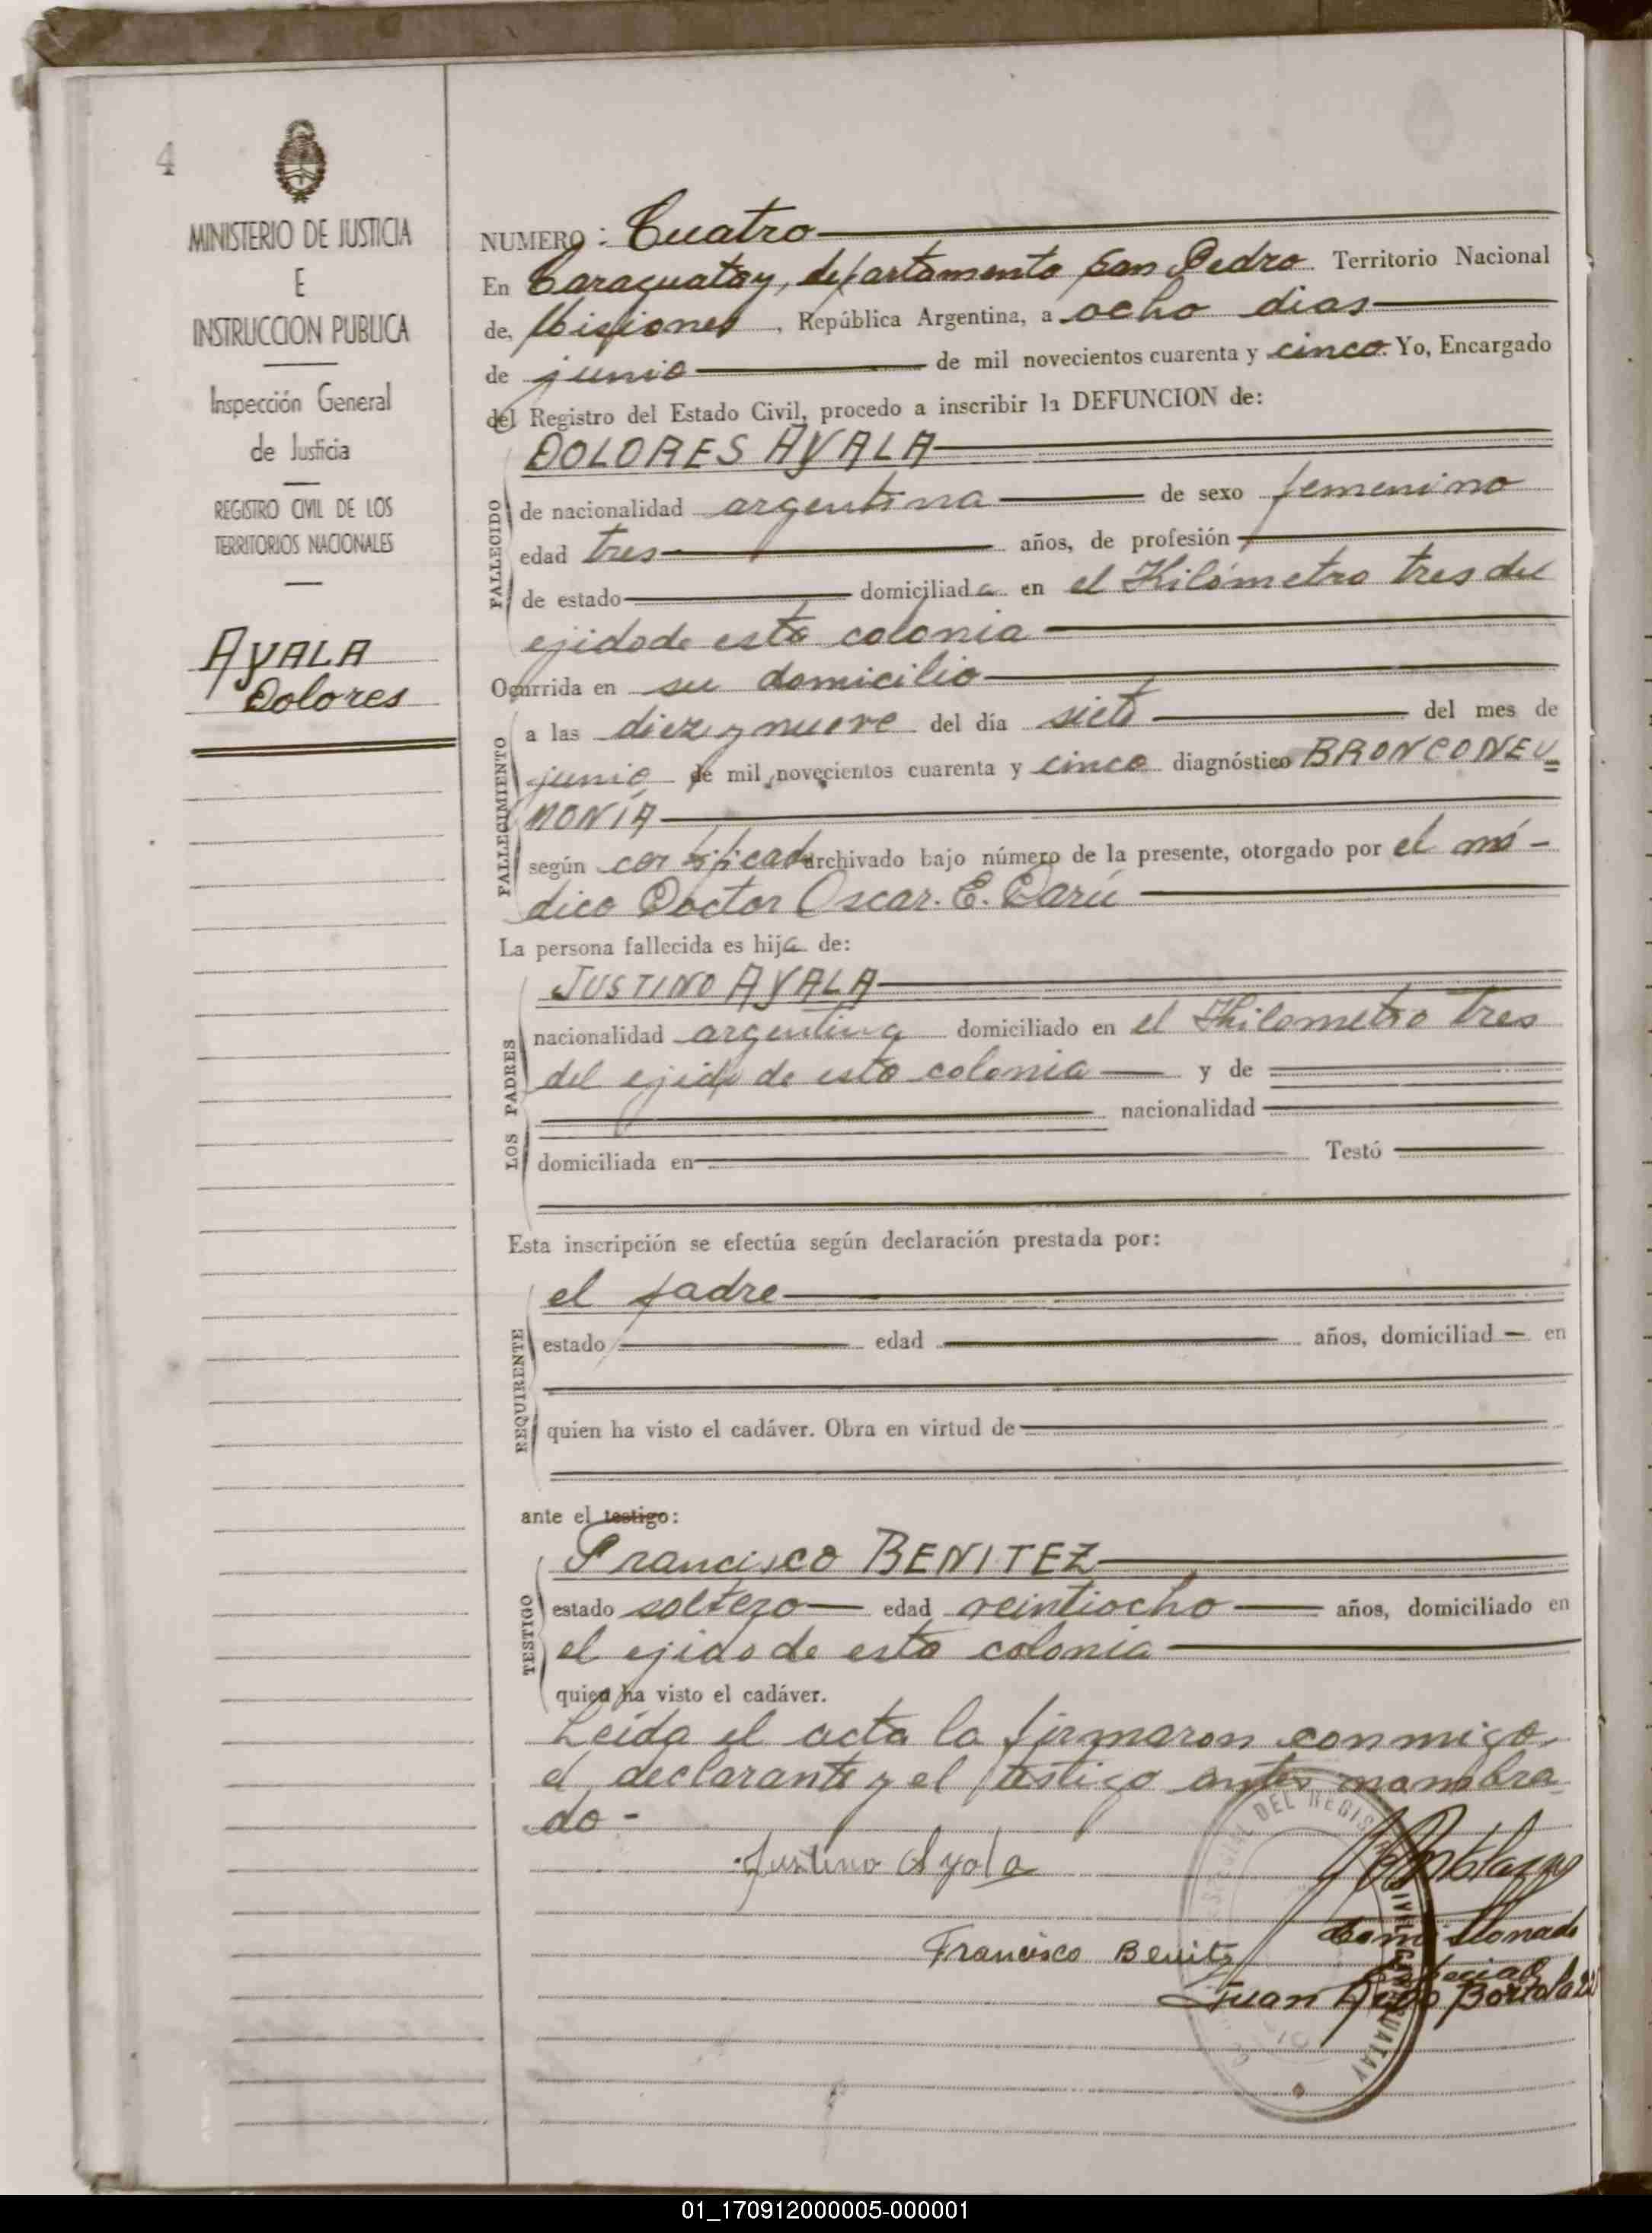 4
MINISTERIO DE JUSTICIA
E
INSTRUCCION PUBLICA
Inspección General
de Justicia
REGISTRO CIVIL DE LOS
TERRITORIOS NACIONALES
AYALA
Dolores
NUMERO: Cuatro
En Caraguatay, departamento San Pedro Territorio Nacional
de, Misiones, República Argentina, a ocho dias
de junio de mil novecientos cuarenta y cinco. Yo, Encargado
del Registro del Estado Civil, procedo a inscribir la DEFUNCION de:
DOLORES AYALA
FALLECIDO
de nacionalidad argentina de sexo femenino
edad tres años, de profesión
de estado domiciliada en el Kilómetro tres del
ejido de esta colonia
Ocurrida en su domicilio
FALLECIMIENTO
a las diez y nueve del día siete del mes de
junio de mil novecientos cuarenta y cinco diagnóstico BRONCONEU
MONÍA
según certificado archivado bajo número de la presente, otorgado por el mé-
dico Doctor Oscar. E. Darú
La persona fallecida es hija de:
JUSTINO AYALA
LOS PADRES
nacionalidad argentina domiciliado en el Kilometro tres
del ejido de esta colonia y de
nacionalidad
domiciliada en Testó
Esta inscripción se efectúa según declaración prestada por:
el padre
REQUIRENTE
estado edad años, domiciliad en
quien ha visto el cadáver. Obra en virtud de
ante el testigo:
Francisco BENITEZ
TESTIGO
estado soltero edad veintiocho años, domiciliado en
el ejido de esta colonia
quien ha visto el cadáver.
Leída el acta la firmaron conmigo,
el declarante y el testigo antes nombra
do-
Justino Ayala
Francisco Benitz
Comisionado
Especial
Juan Bortolazzo
DEL REGIS
CIVIL CARAGUATAY
01_170912000005-000001